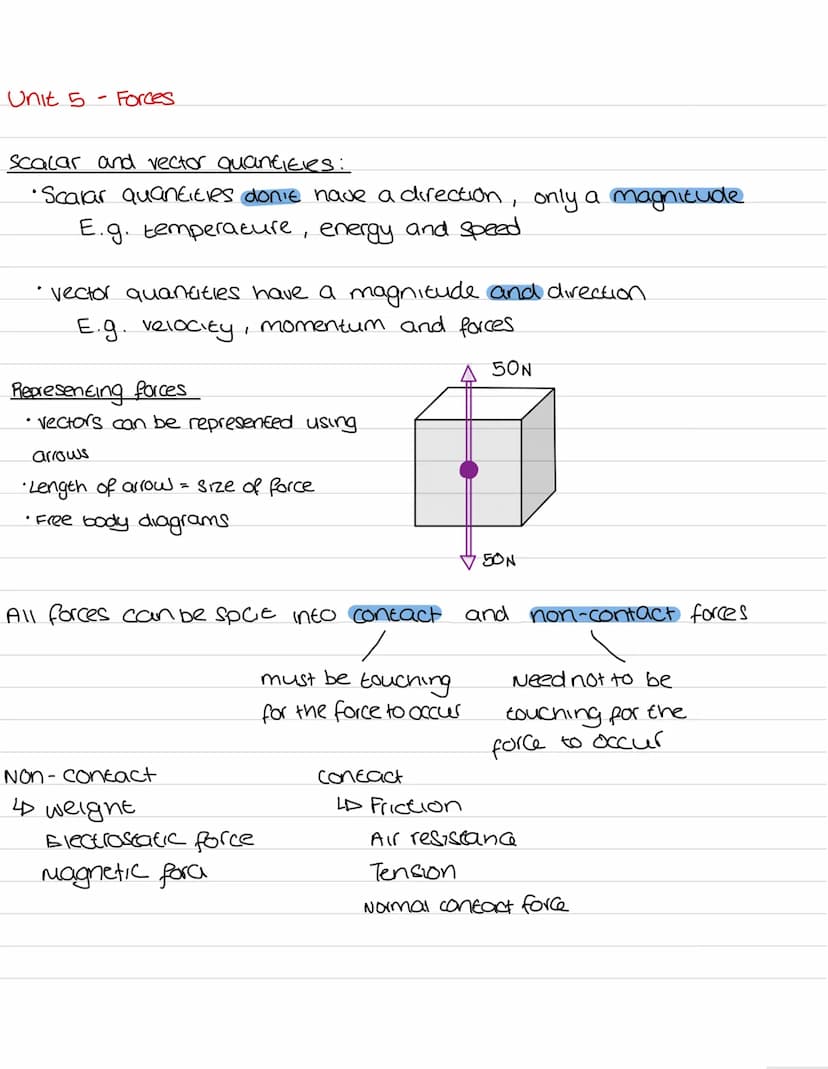 Unit 5 - Forces
Scalar and vector quantities:
• Scalar quantities don't have a direction, only a magnitude
E.g. temperature, energy and speed
• Vector quantities have a magnitude and direction
E.g. velocity, momentum and forces
50N
Representing forces
• Vectors can be represented using
arrows
• Length of arrow = size of force
• Free body diagrams
50N
All forces can be split into contact and non-contact forces
must be touching
for the force to occur
Need not to be
touching for the
force to occur
Non-contact
↳ Weight
Electrostatic force
Magnetic force
Contact
↳ Friction
Air resistance
Tension
Normal contact force